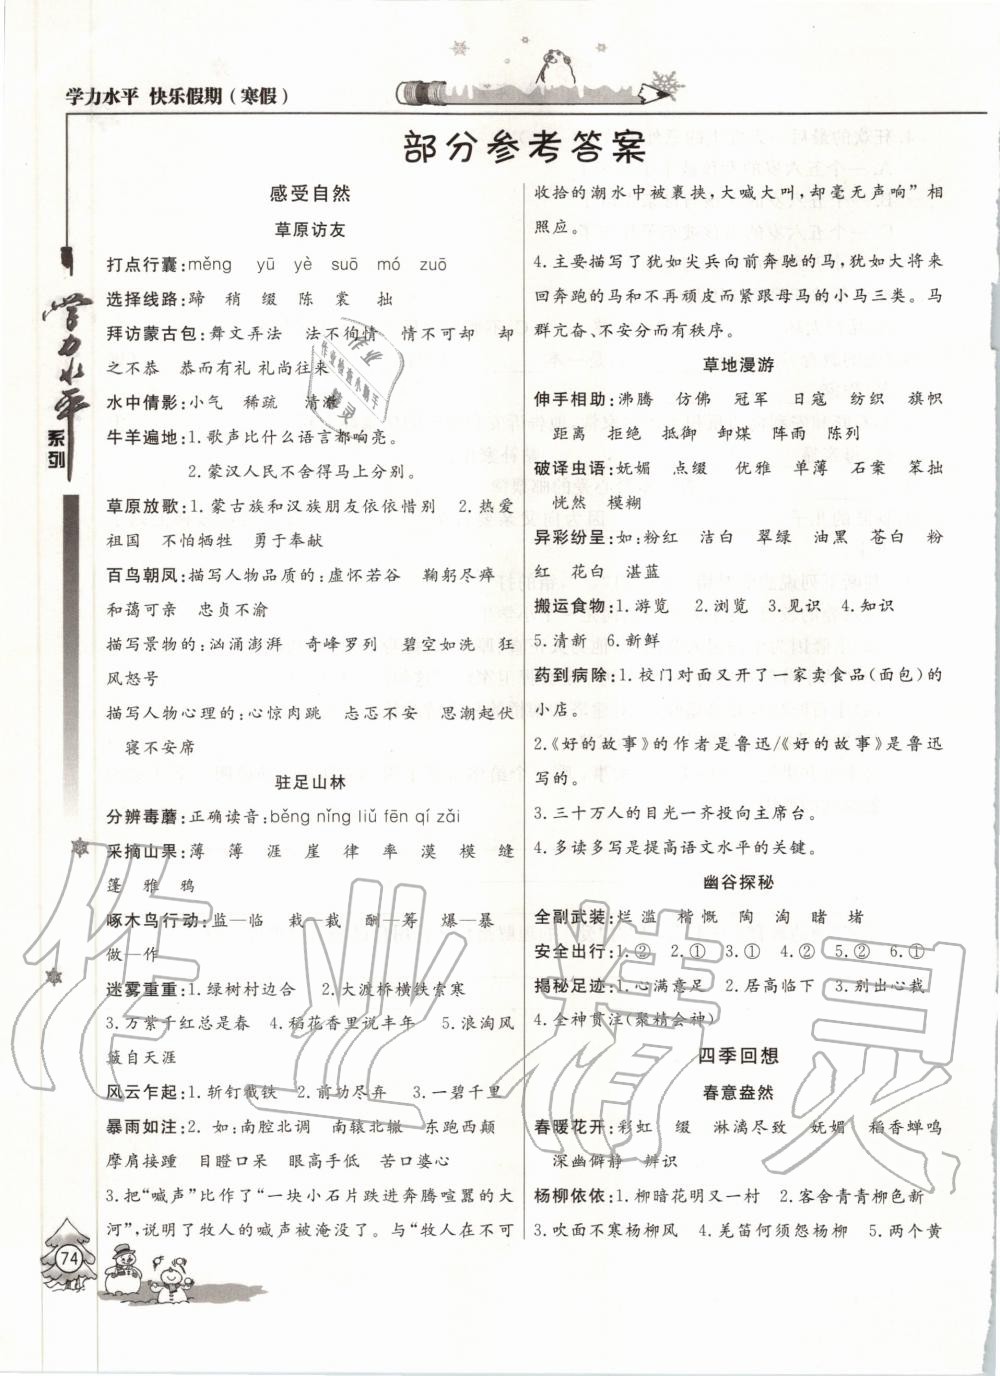 学力水平 快乐假期(寒假)
部分参考答案
感受自然
草原访友
打点行囊:měng yū yè suō mó zuō
选择线路:蹄 稍 缀 陈 裳 拙
拜访蒙古包:舞文弄法 法不徇情 情不可却 却
之不恭 恭而有礼 礼尚往来
水中倩影:小气 稀疏 清澈
牛羊遍地:1.歌声比什么语言都响亮。
2.蒙汉人民不舍得马上分别。
草原放歌:1.蒙古族和汉族朋友依依惜别 2.热爱
祖国 不怕牺牲 勇于奉献
百鸟朝凤:描写人物品质的:虚怀若谷 鞠躬尽瘁
和蔼可亲 忠贞不渝
描写景物的:汹涌澎湃 奇峰罗列 碧空如洗 狂
风怒号
描写人物心理的:心惊肉跳 忐忑不安 思潮起伏
寝不安席
驻足山林
分辨毒蘑:正确读音:běng nǐng liǔ fēn qí zǎi
采摘山果:薄 薄 涯 崖 律 率 漠 模 缝
篷 雅 鸦
啄木鸟行动:监—临 栽—裁 酬—筹 爆—暴
做—作
迷雾重重:1.绿树村边合 2.大渡桥横铁索寒
3.万紫千红总是春 4.稻花香里说丰年 5.浪淘风
簸自天涯
风云乍起:1.斩钉截铁 2.前功尽弃 3.一碧千里
暴雨如注:2. 如:南腔北调 南辕北辙 东跑西颠
摩肩接踵 目瞪口呆 眼高手低 苦口婆心
3.把“喊声”比作了“一块小石片跌进奔腾喧嚣的大
河”,说明了牧人的喊声被淹没了。与“牧人在不可
收拾的潮水中被裹挟,大喊大叫,却毫无声响”相
照应。
4.主要描写了犹如尖兵向前奔驰的马、犹如大将来
回奔跑的马和不再顽皮而紧跟母马的小马三类。马
群亢奋、不安分而有秩序。
草地漫游
伸手相助:沸腾 仿佛 冠军 日寇 纺织 旗帜
距离 拒绝 抵御 卸煤 阵雨 陈列
破译虫语:妩媚 点缀 优雅 单薄 石案 笨拙
恍然 模糊
异彩纷呈:如:粉红 洁白 翠绿 油黑 苍白 粉
红 花白 湛蓝
搬运食物:1.游览 2.浏览 3.见识 4.知识
5.清新 6.新鲜
药到病除:1.校门对面又开了一家卖食品(面包)的
小店。
2.《好的故事》的作者是鲁迅/《好的故事》是鲁迅
写的。
3.三十万人的目光一齐投向主席台。
4.多读多写是提高语文水平的关键。
幽谷探秘
全副武装:烂 滥 楷 慨 陶 淘 睹 堵
安全出行:1.② 2.① 3.① 4.② 5.② 6.①
揭秘足迹:1.心满意足 2.居高临下 3.别出心裁
4.全神贯注(聚精会神)
四季回想
春意盎然
春暖花开:彩虹 缀 淋漓尽致 妩媚 稻香蝉鸣
深幽僻静 辨识
杨柳依依:1.柳暗花明又一村 2.客舍青青柳色新
3.吹面不寒杨柳风 4.羌笛何须怨杨柳 5.两个黄
学力水平
系列
74
作业精灵
作业
作业检查小助手
精灵